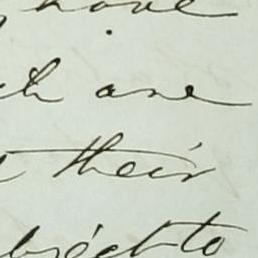 have
ch are
their
bject to